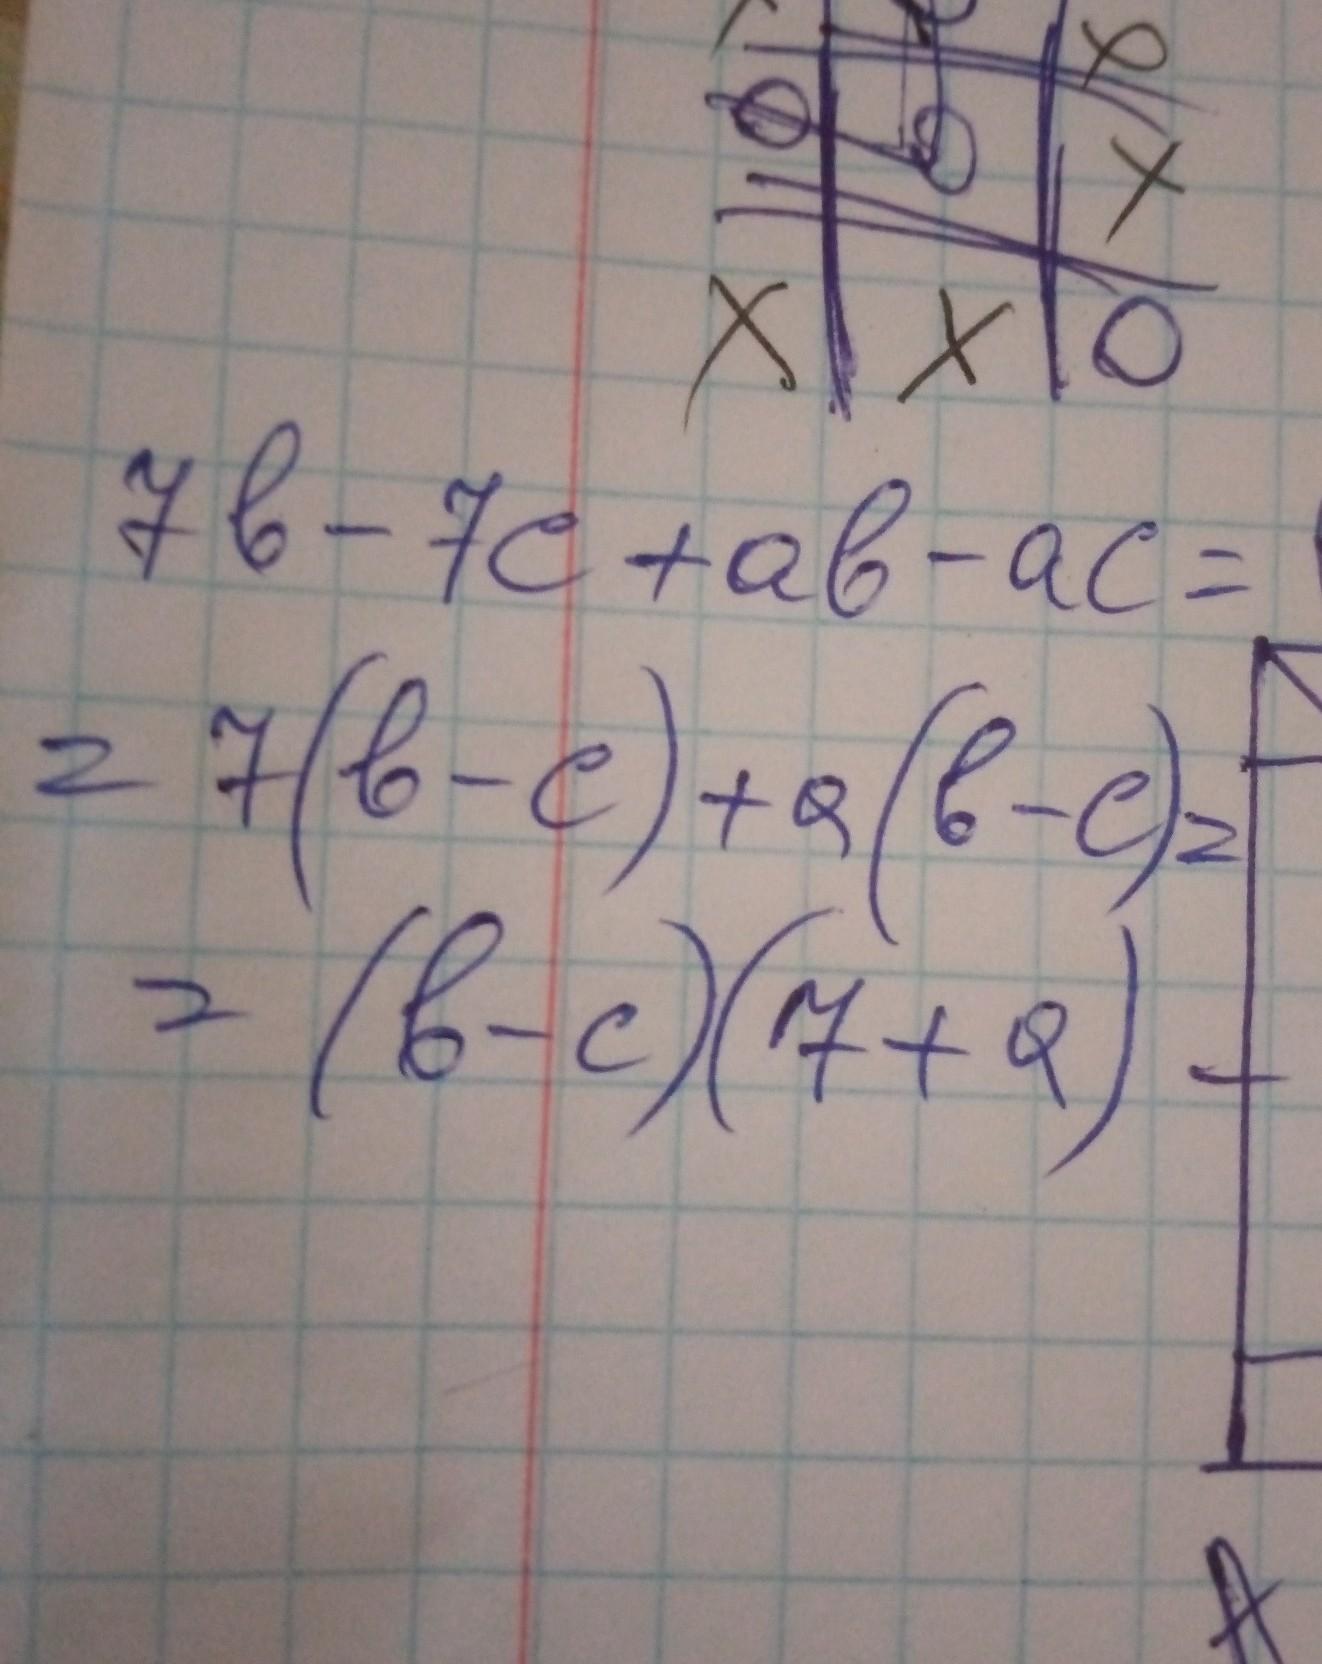 X
O O X
X X O
7b - 7c + ab - ac =
= 7(b - c) + a(b - c) =
= (b - c)(7 + a)
A